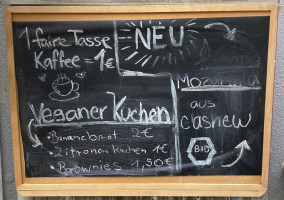 1 faire Tasse
Kaffee = 1€
Veganer Kuchen
• Bananabrot 2€
• Zitronen Kuchen 1€
• Barownies 1,50€
NEU
Mozarella
aus
cashew
BIO